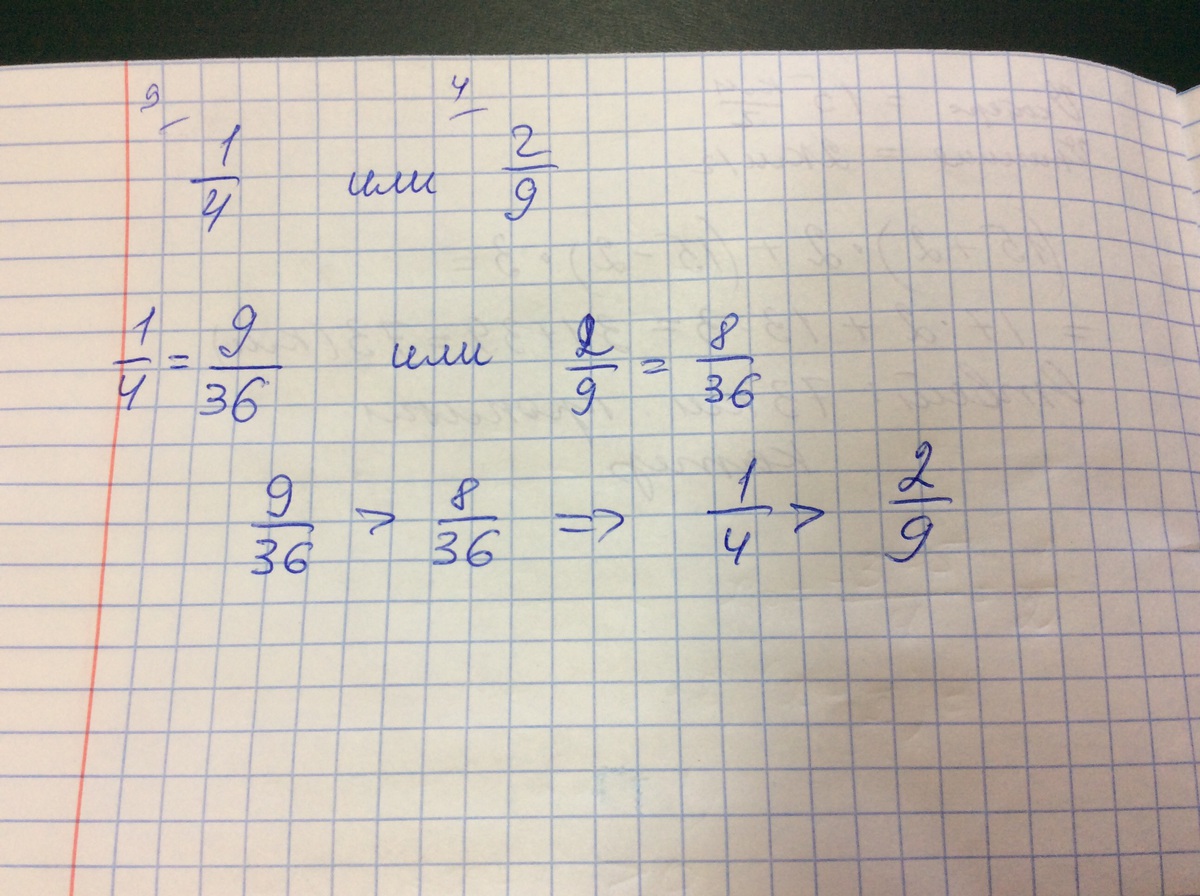 9 4
1/4 или 2/9
1/4 = 9/36 или 2/9 = 8/36
9/36 > 8/36 => 1/4 > 2/9